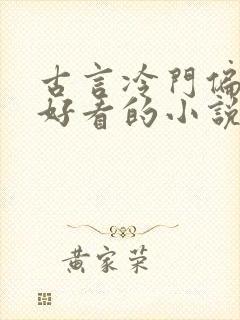 古言冷門偏
好看的小說
黃家榮